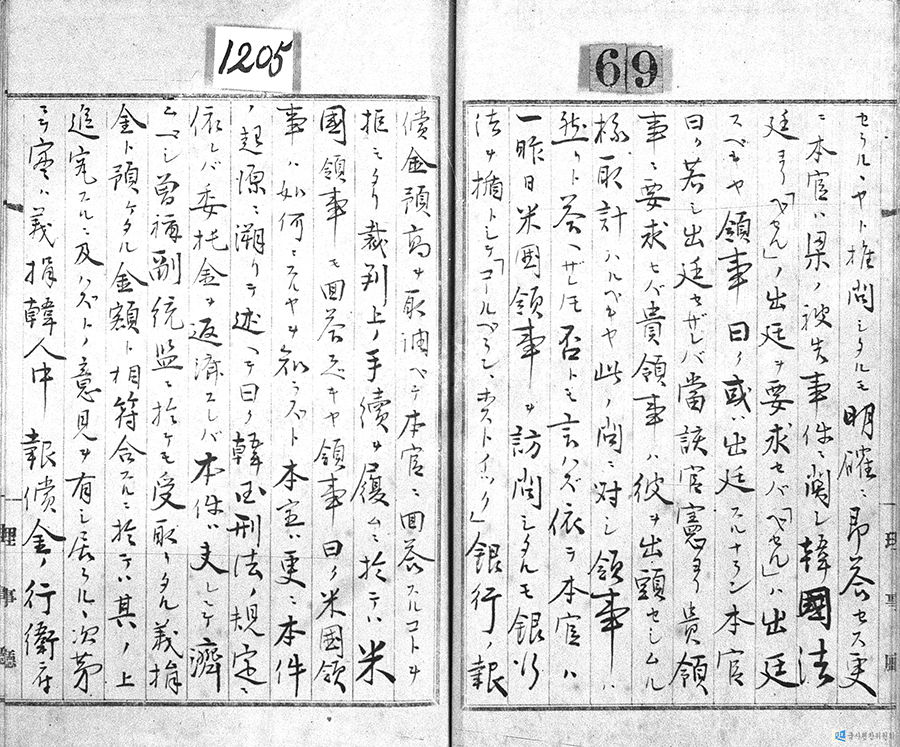 69
セラルヽヤト推問シタルモ明確ニ即答セス更
ニ本官ハ梁ノ被告事件ニ関シ韓國法
廷ヨリ「べせる」ノ出廷ヲ要求セバ「べせる」ハ出廷
スベキヤ領事曰ク或ハ出廷スルナラン本官
曰ク若シ出廷セザレバ當該官憲ヨリ貴領
事ニ要求セバ貴領事ハ彼ヲ出頭セシムル
様取計ハルベキヤ此ノ問ニ対シ領事ハ
然リト答ヘザルモ否トモ言ハズ依テ本官ハ
一昨日米國領事ヲ訪問シタルモ銀行
法ヲ楯トシテ「コールブラン、ボストイック」銀行ノ報
1205
償金預高ヲ取調ベテ本官ニ回答スルコトヲ
拒ミタリ裁判上ノ手續ヲ履ムニ於テハ米
國領事モ回答スベキヤ領事曰ク米國領
事ハ如何ニスルヤヲ知ラズト本官ハ更ニ本件
ノ起源ニ溯リテ述ヘテ曰ク韓国刑法ノ規定ニ
依レバ委托金ヲ返済スレバ本件ハ夫レニテ濟
ムベシ曽祢副統監ニ於テモ受取リタル義捐
金ト預ケタル金額ト相符合スルニ於テハ其ノ上
追究スルニ及ハズトノ意見ヲ有シ居ラル、次第
ニテ實ハ義捐韓人中報償金ノ行衛ニ
理事廳
国사편찬위원회